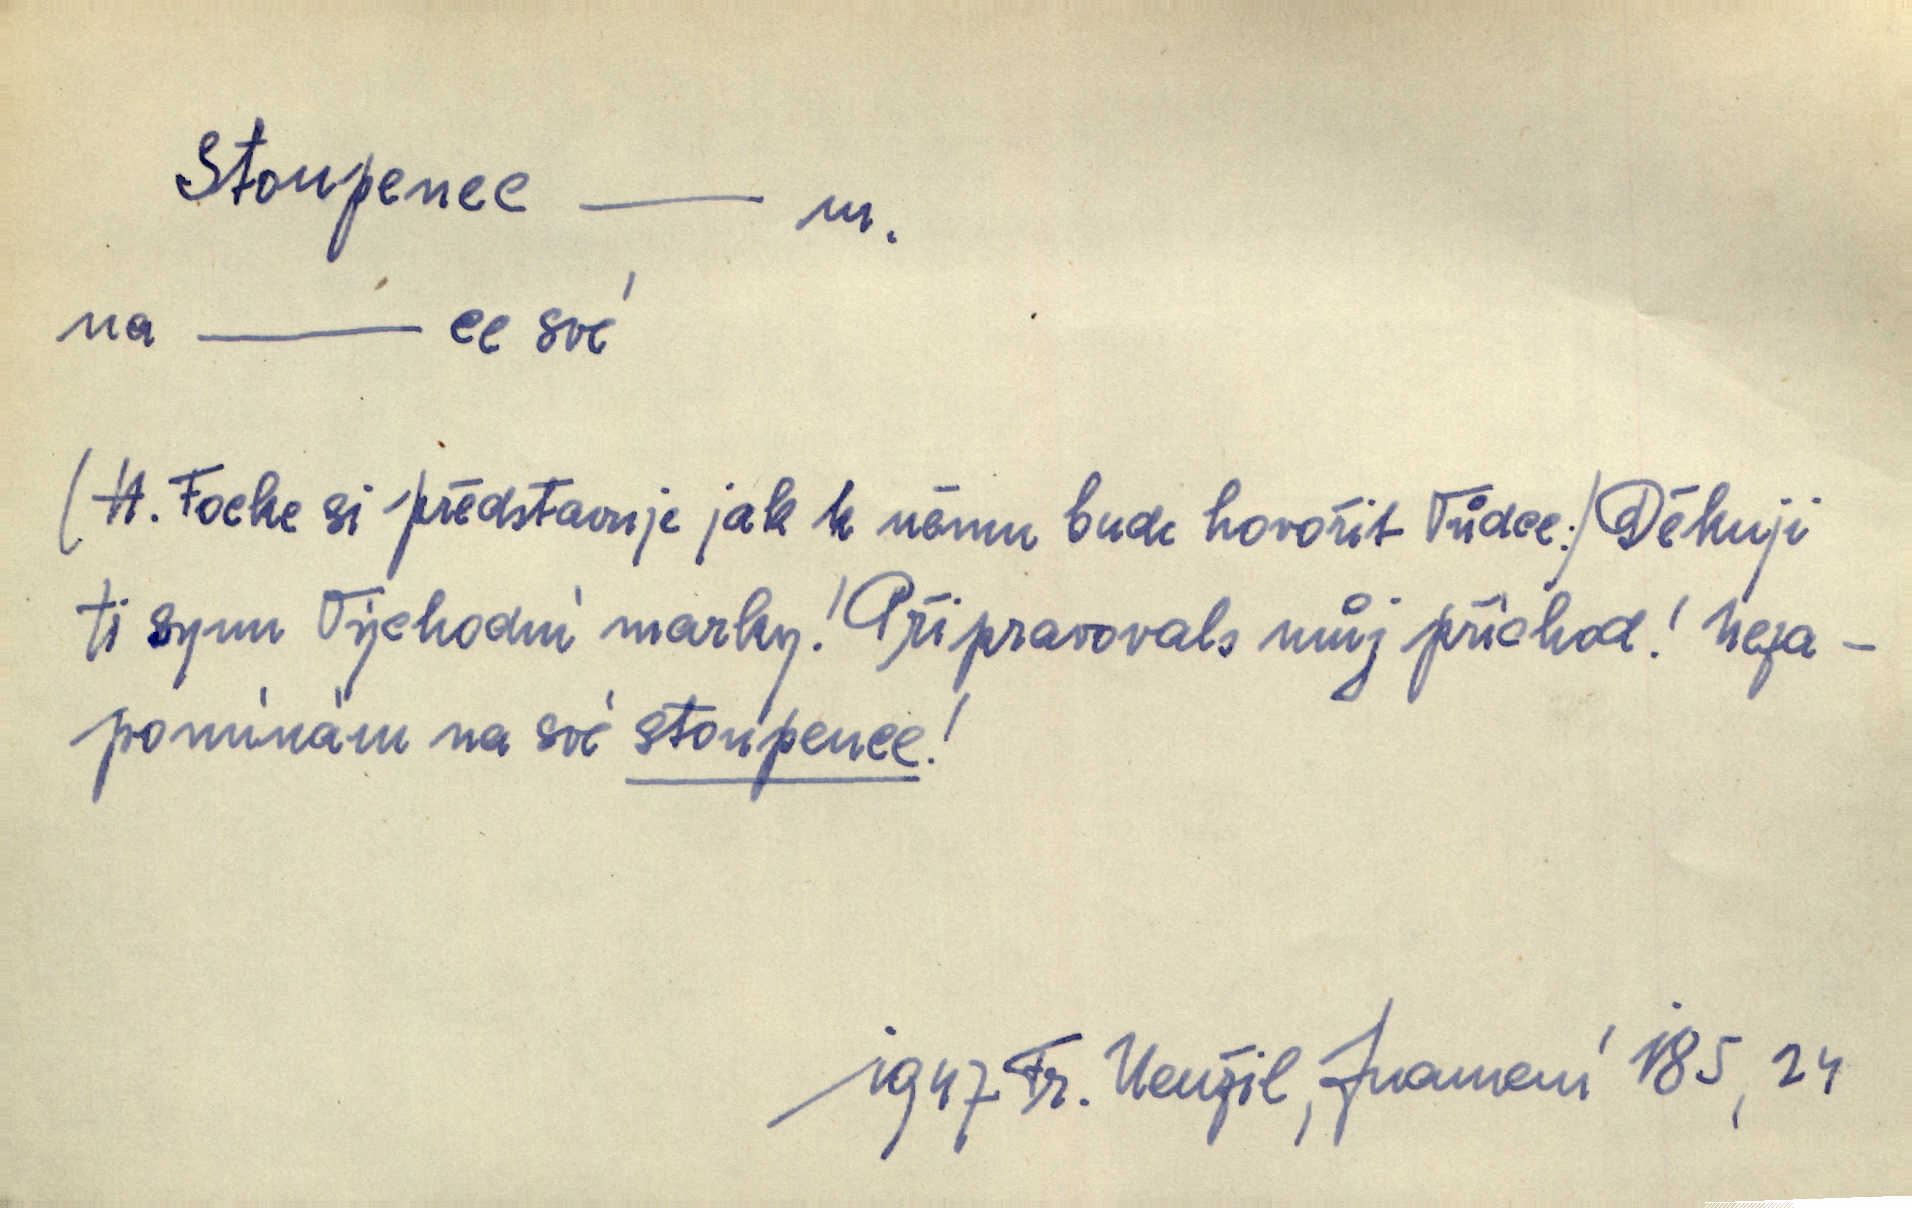 Stoupenec —— m.
na —— ce své
(H. Focke si představuje jak k němu bude hovořit Vůdce:) Děkuji
ti synu Východní marky! Připravovals můj příchod! Neza-
pomínám na své stoupence!
1947 Fr. Neužil, Znamení 185, 24